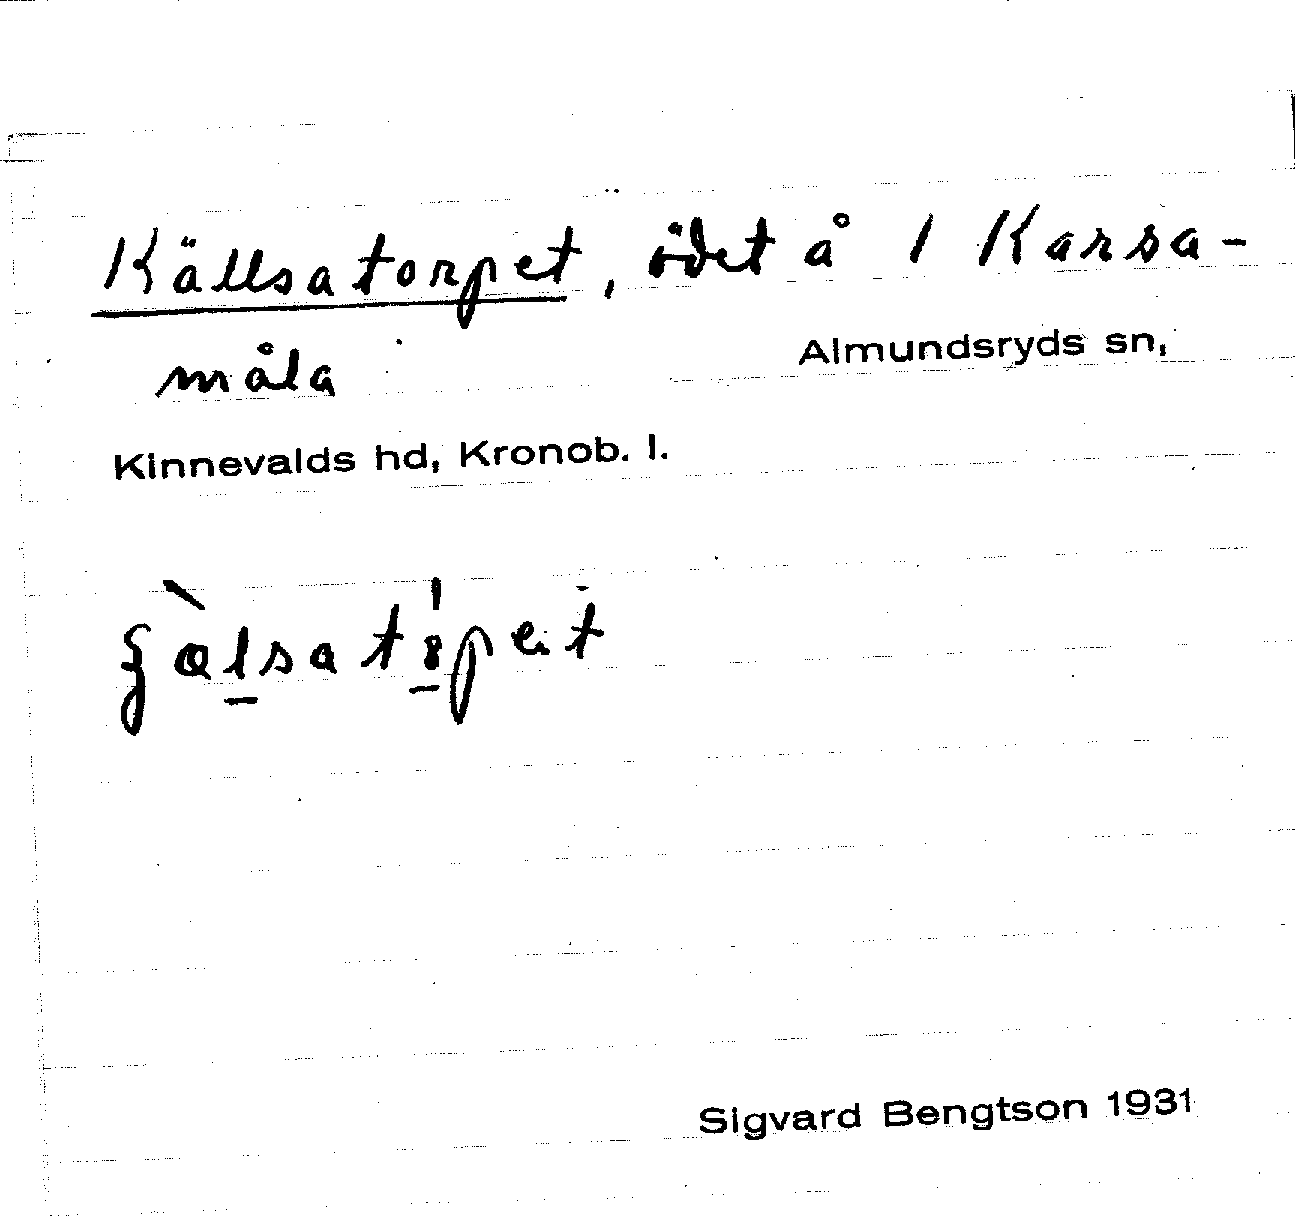 Källsatorpet, ödet å 1 Karsa-
måla Almundsryds sn,
Kinnevalds hd, Kronob. l.
Sigvard Bengtson 1931